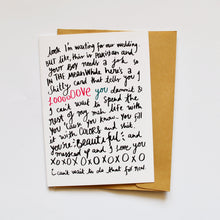 look I'm waiting for our wedding
but like, this is Pakistan and
your boy needs a job so
IN THE MEANWHILE here's a
shitty card that tells you I
LOOOOOVE you dammit &
I can't wait to spend the
rest of my meh life with
you when you know. You fill
it with COLORS and shit.
you're BEAUTIFUL and
messed up and I love you
XOXOXOXOXOXOXO
i can't wait to do that for real